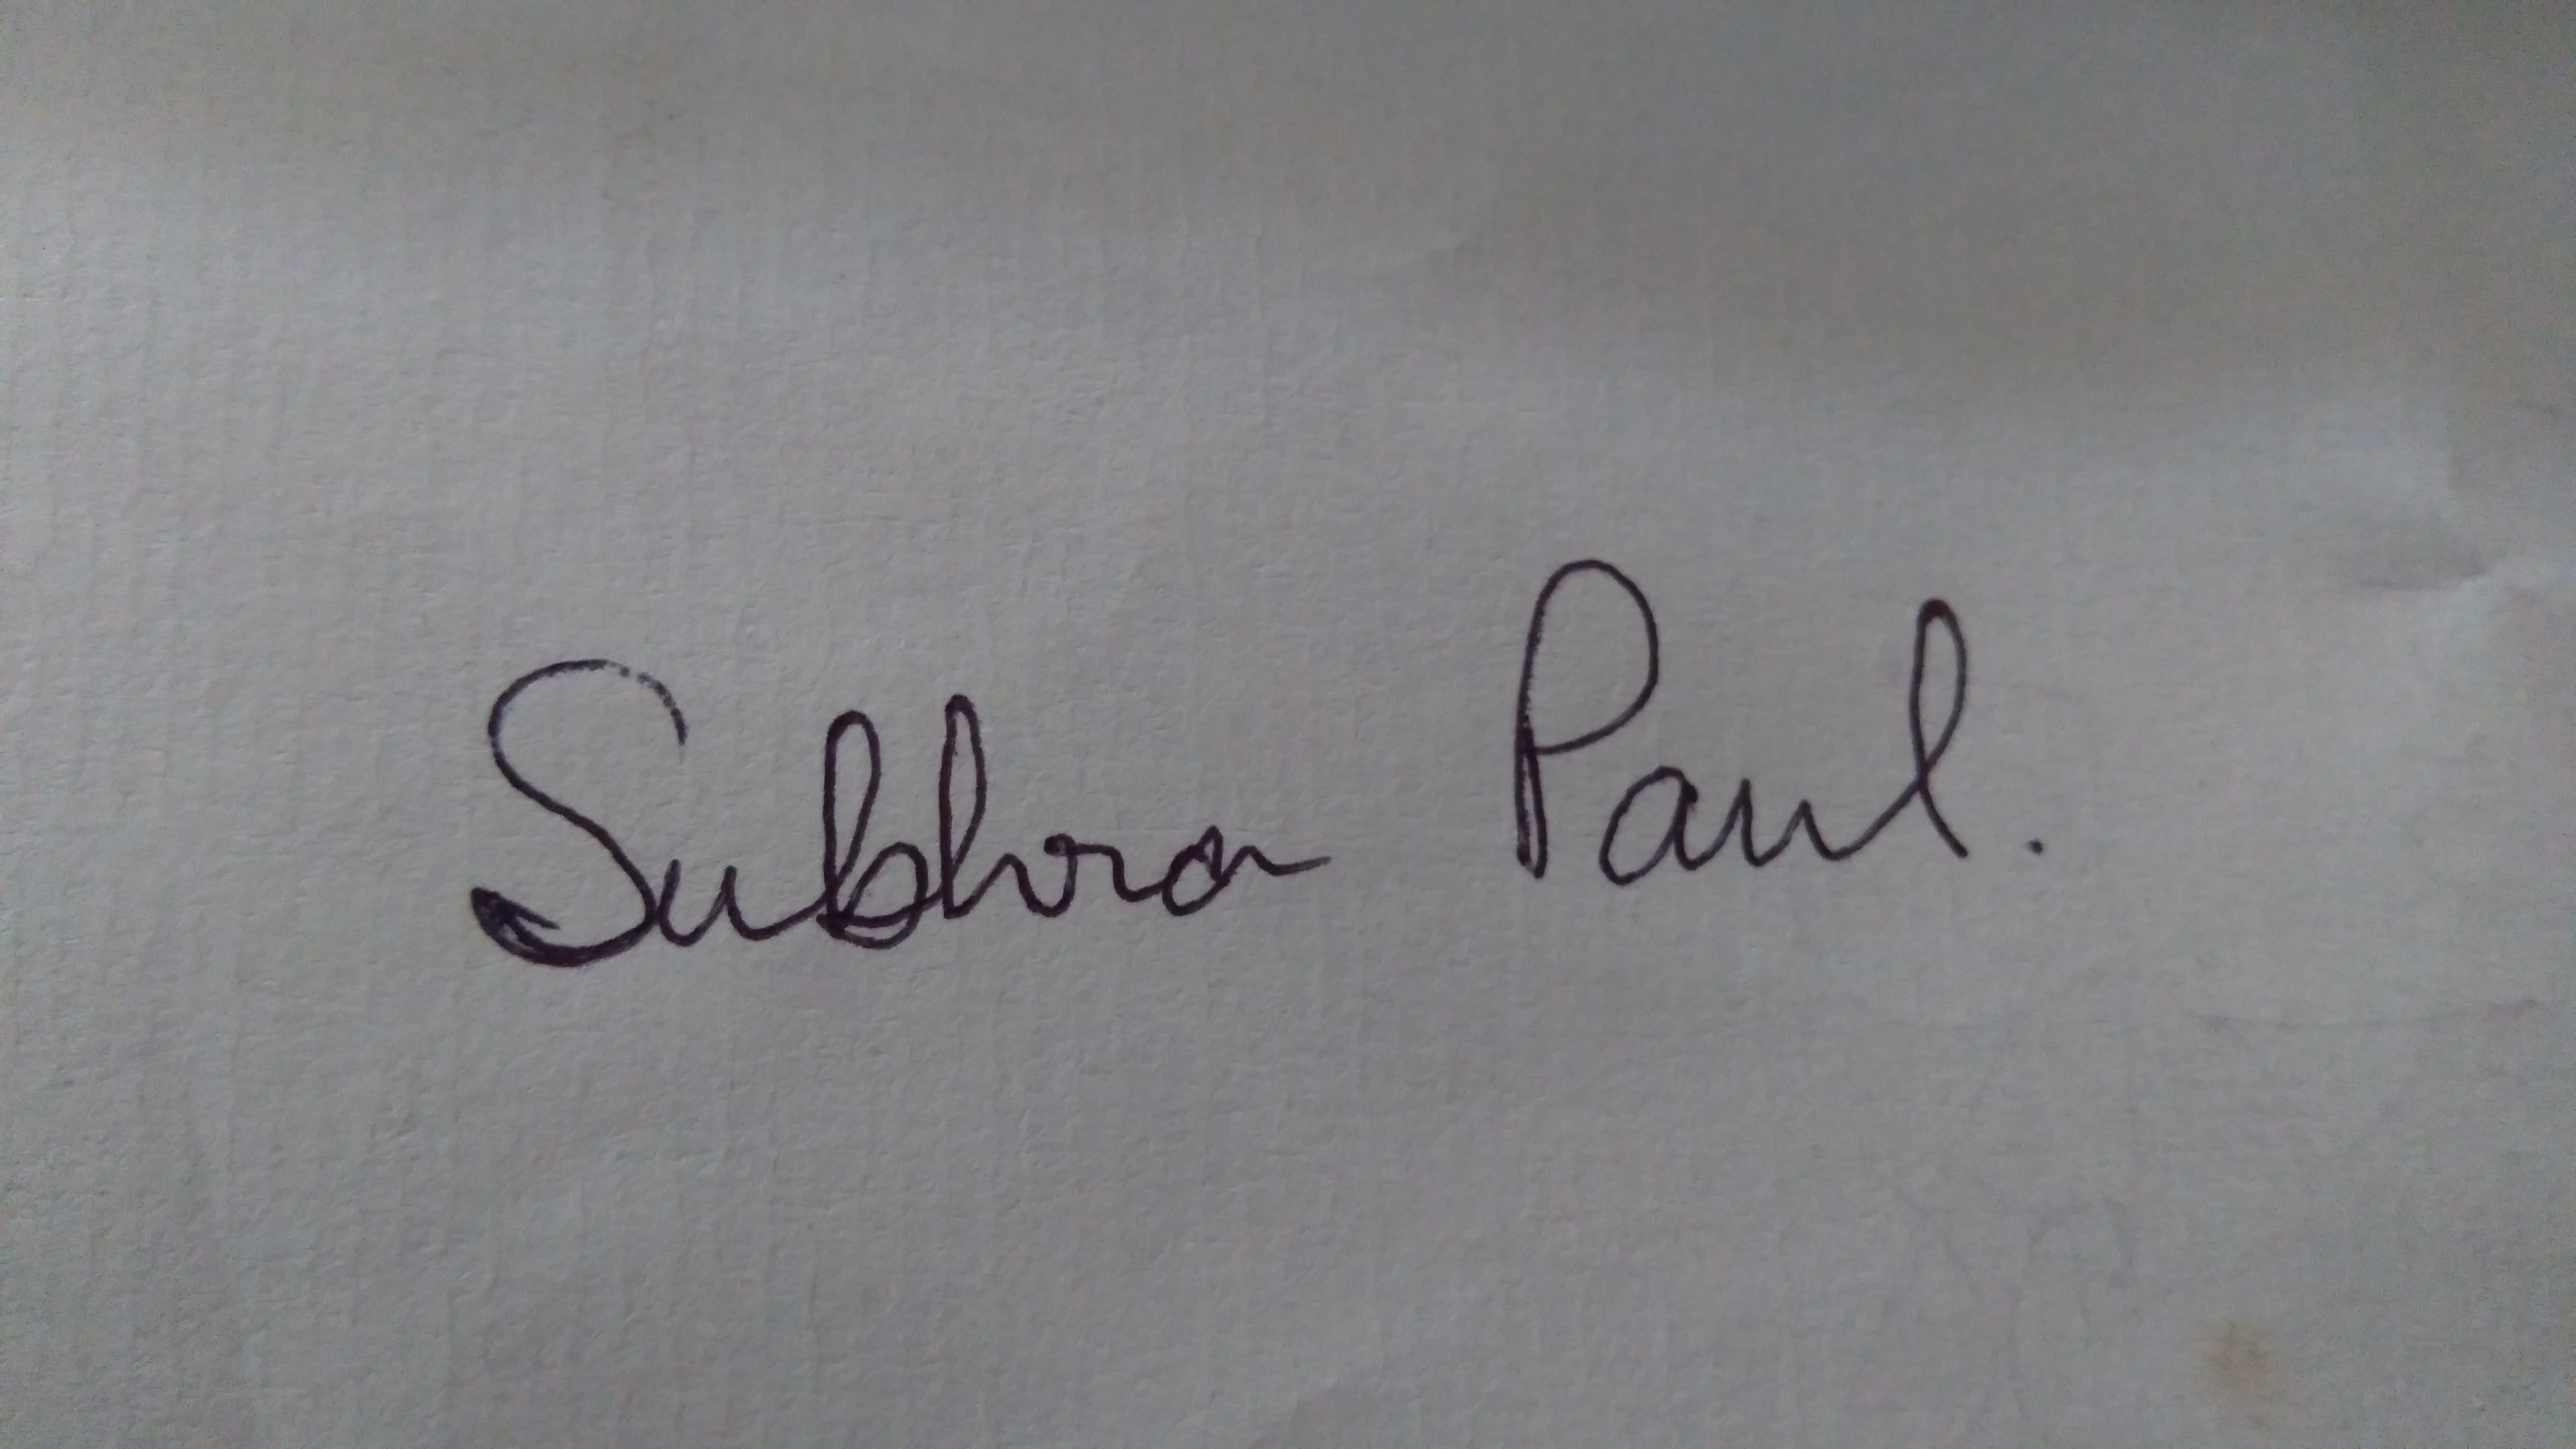 Subhra Paul.